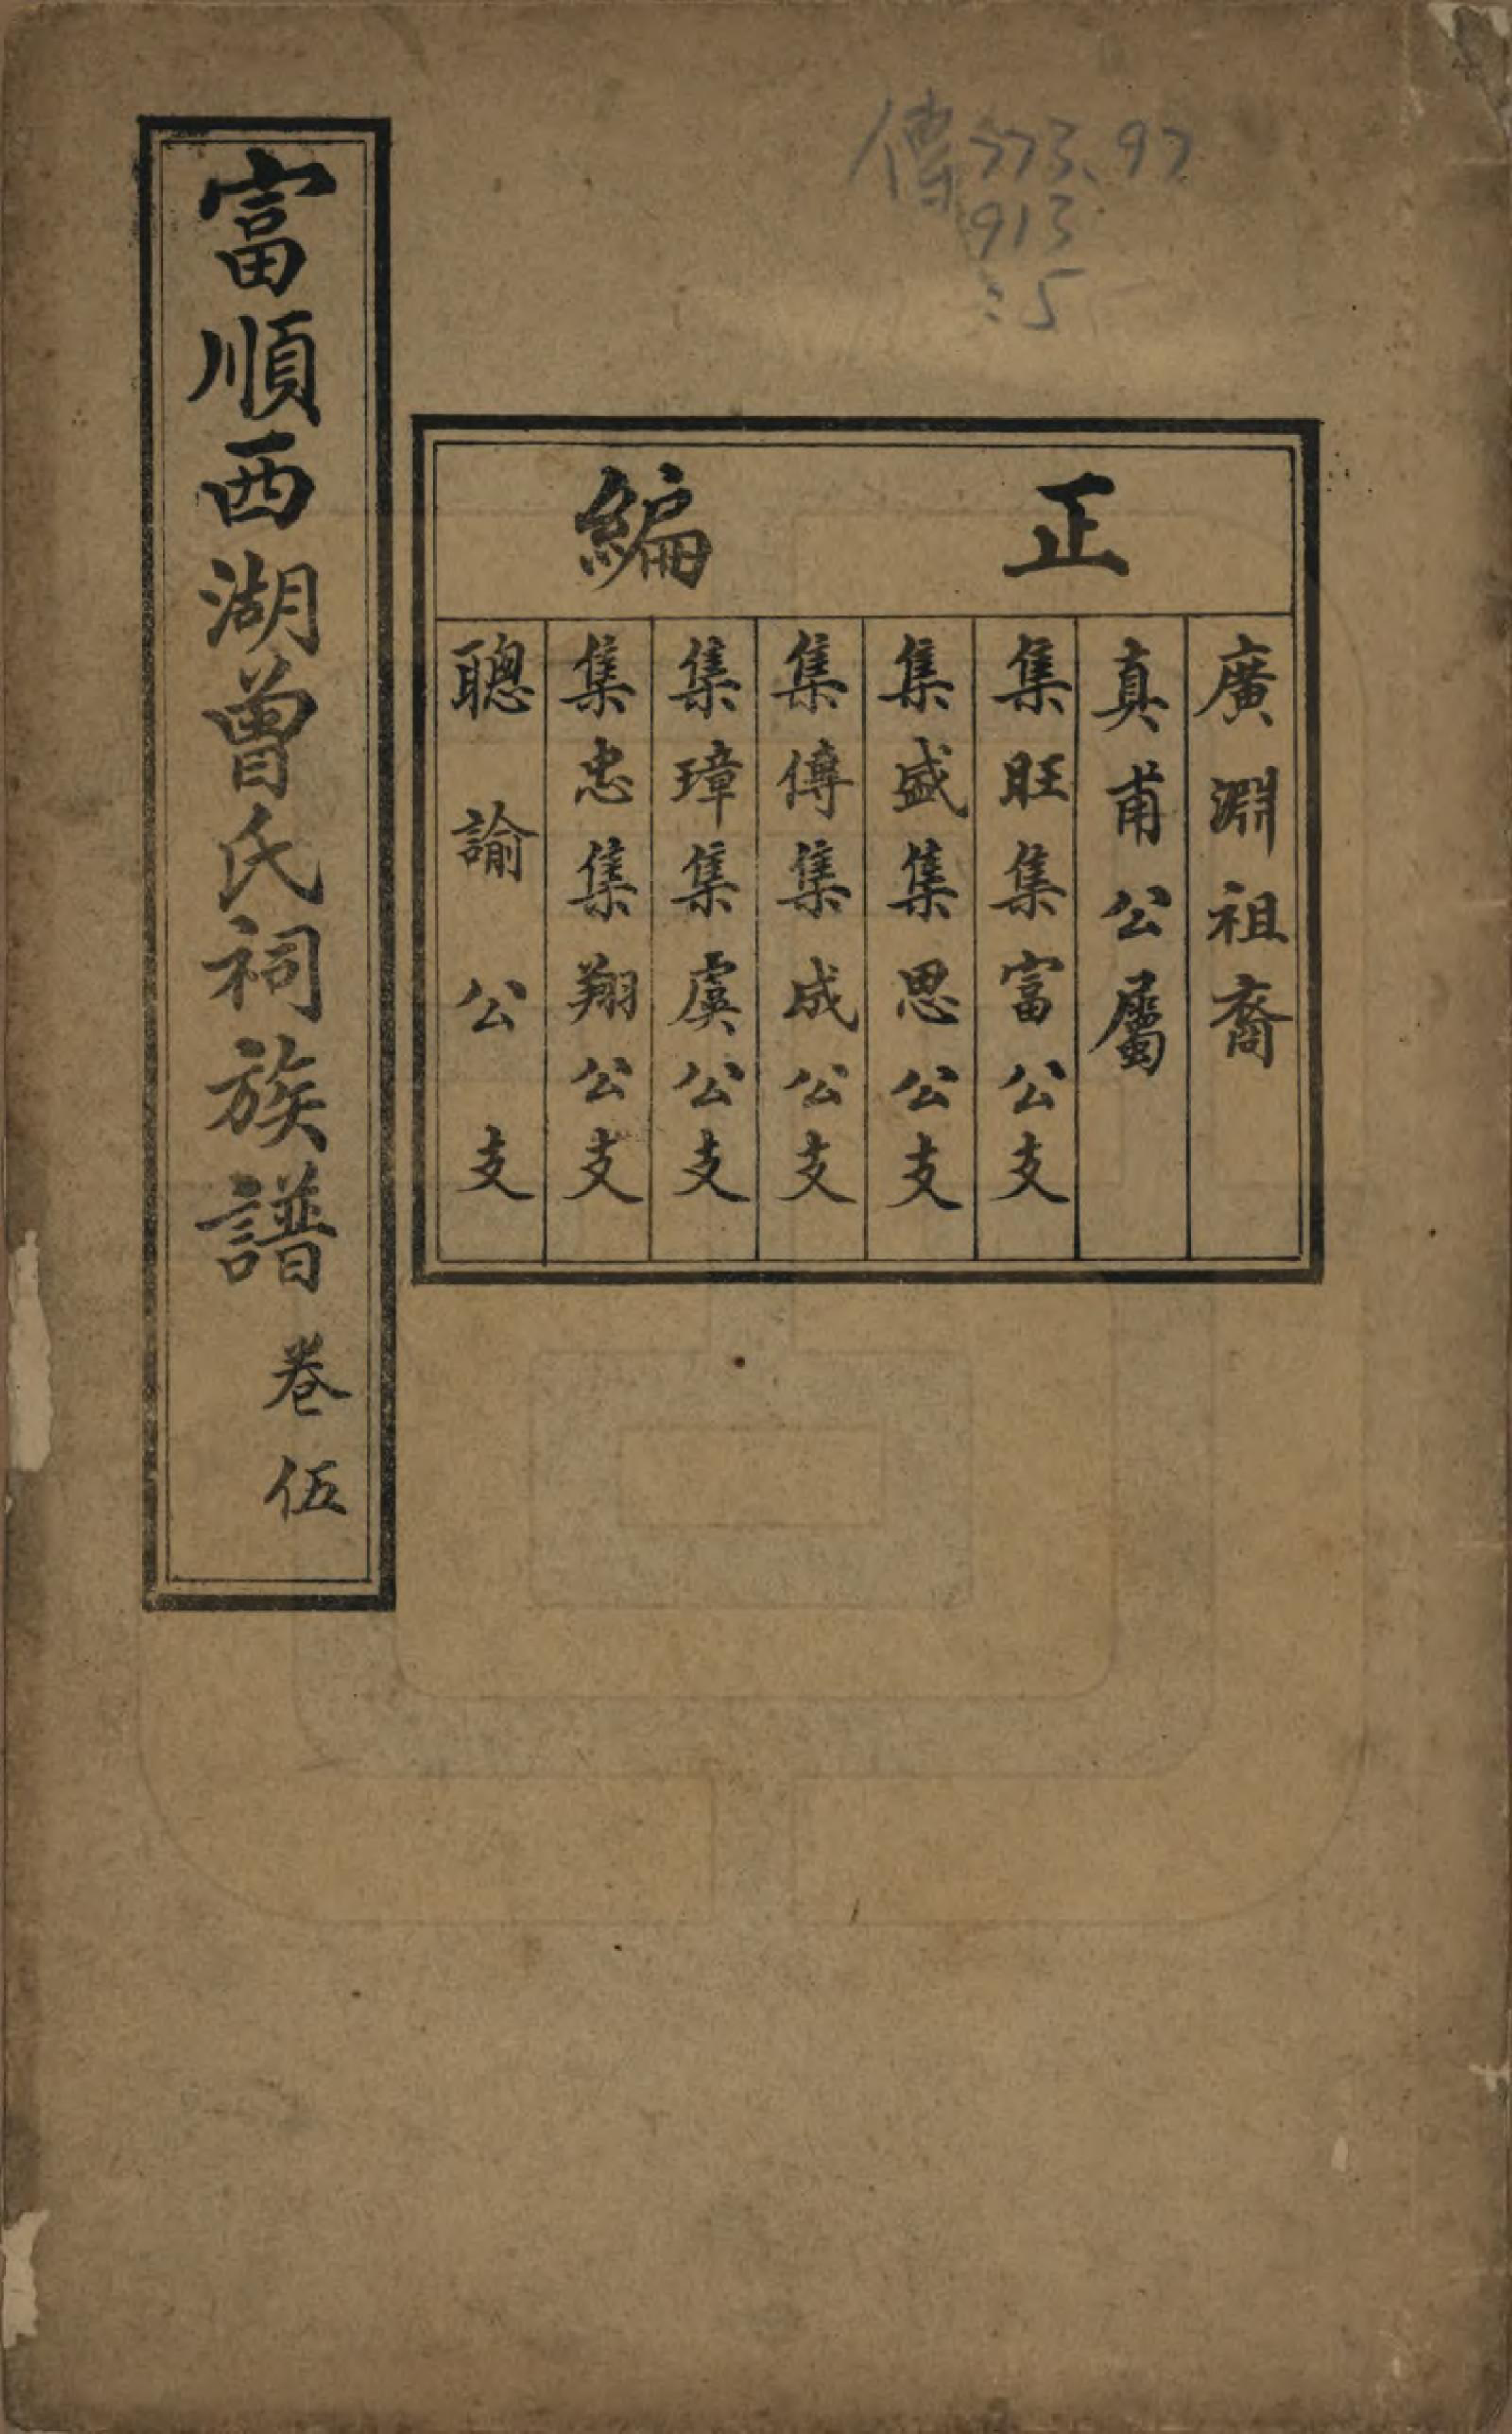 傳773.97
913
:5
正編
廣淵祖裔
真甫公屬
集旺集富公支
集盛集思公支
集傳集成公支
集璋集虞公支
集忠集翔公支
聰諭公支
富順西湖曾氏祠族譜 卷伍